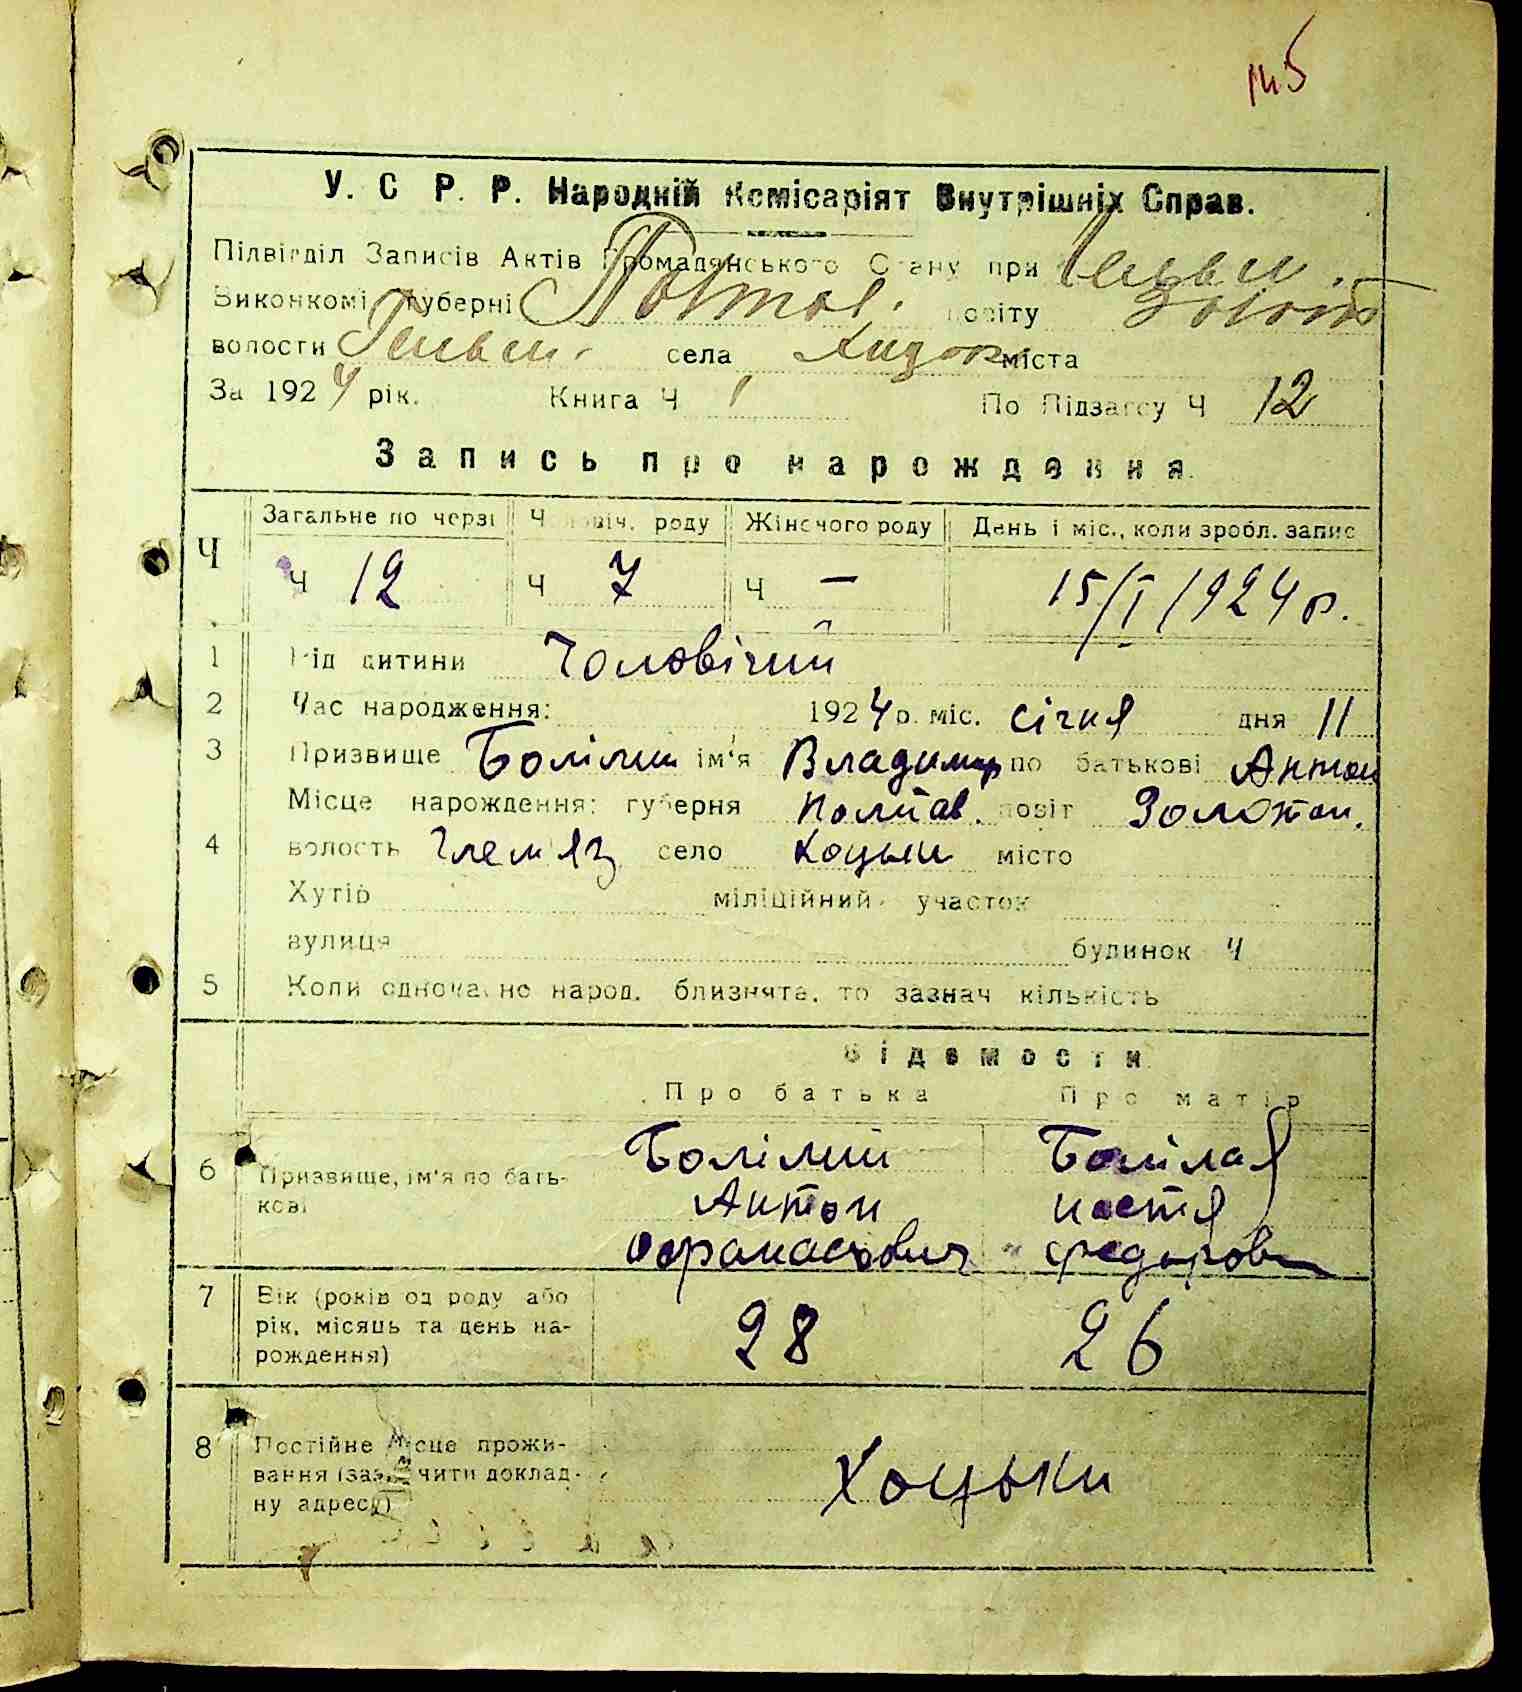 У. С Р. Р. Народній Комісаріят Внутрішніх Справ.
Підвідділ Записів Актів Громадянського Стану при
Виконкомі губерні Полтав. повіту Золотон
волости села міста
За 1924 рік. Книга Ч 1 По Підзагсу Ч 12
Запись про нарождення.
Ч Загальне по черзі Чоловіч. роду Жіночого роду День і міс., коли зробл. запис
Ч 12 Ч 7 Ч — 15/I 1924 р.
1 Рід дитини Чоловічий
2 Час народження: 1924 р. міс. січня дня 11
3 Призвище Болілий ім'я Владимир по батькові Антон
Місце нарождення: губерня Полтав. повіт Золотон.
4 волость Глемяз село Хоцьки місто
Хутір міліційний участок
вулиця будинок Ч
5 Коли одночасно народ. близнята, то зазнач кількість
Відомости
Про батька Про матір
6 Призвище, ім'я по батькові Болілий Болілая
Антон Настя
Афанасович Федоровн
7 Вік (років од роду або
рік, місяць та день на-
рождення) 28 26
8 Постійне місце прожи-
вання (зазначити доклад-
ну адресу) Хоцьки